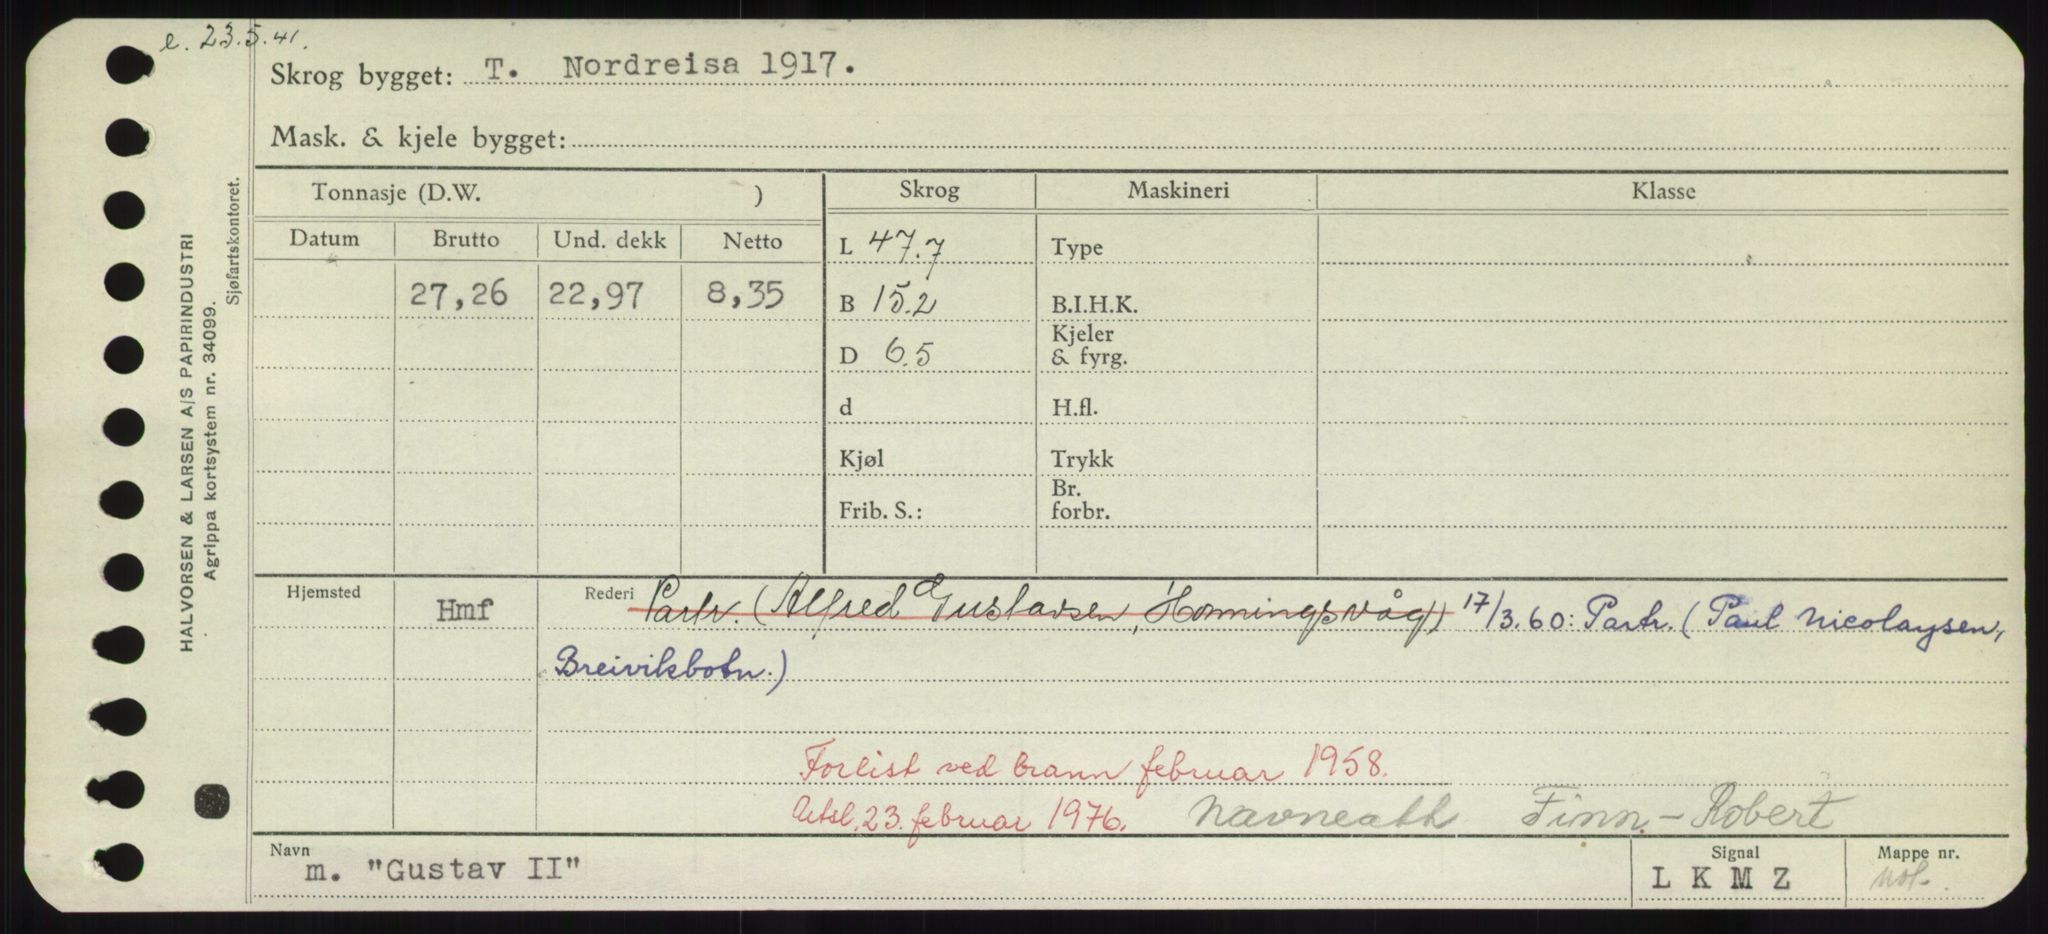 e. 23.5.41.
Skrog bygget: T. Nordreisa 1917.
Mask. & kjele bygget:
Tonnasje (D.W. )
Skrog
Maskineri
Klasse
Datum
Brutto
Und. dekk
Netto
27,26
22,97
8,35
L 47.7
Type
B 15.2
B.I.H.K.
D 6.5
Kjeler
& fyrg.
d
H.fl.
Kjøl
Trykk
Frib. S.:
Br.
forbr.
Hjemsted
Hmf
Rederi Partr. (Alfred Gustavsen, Honningsvåg) 17/3.60: Partr. (Paul Nicolaysen,
Breivikbotn.)
Forlist ved brann februar 1958.
Utsl. 23. februar 1976. Navneatt Finn-Robert
Navn
m. "Gustav II"
Signal
L K M Z
Mappe nr.
HALVORSEN & LARSEN A/S PAPIRINDUSTRI
Agrippa kortsystem nr. 34099.
Sjøfartskontoret.